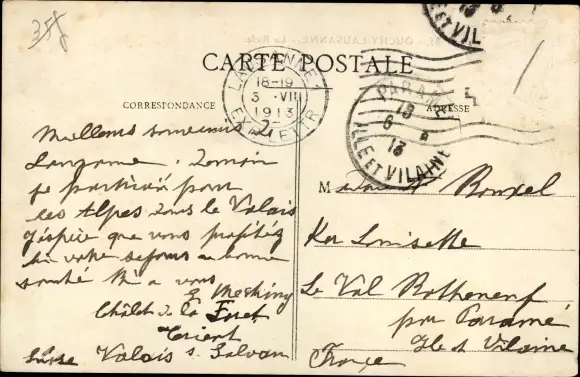 358
OUCHY-LAUSANNE.
CARTE POSTALE
LAUSANNE 1
18-19
3 VIII
1913
EXP. LETTR.
PARAMÉ
18
6 8
13
ILLE ET VILAINE
13
ET VIL
CORRESPONDANCE
ADRESSE
Meilleurs souvenirs de
Lausanne. Demain
je partirai pour
les Alpes dans le Valais
J'espère que vous profitez
de votre séjour en bonne
santé à vous
Châlet de la Foret
Trient
Suisse Valais s. Salvan
Madame Rouxel
Ker Louisette
Le Val Rotheneuf
par Paramé
Ille et Vilaine
France